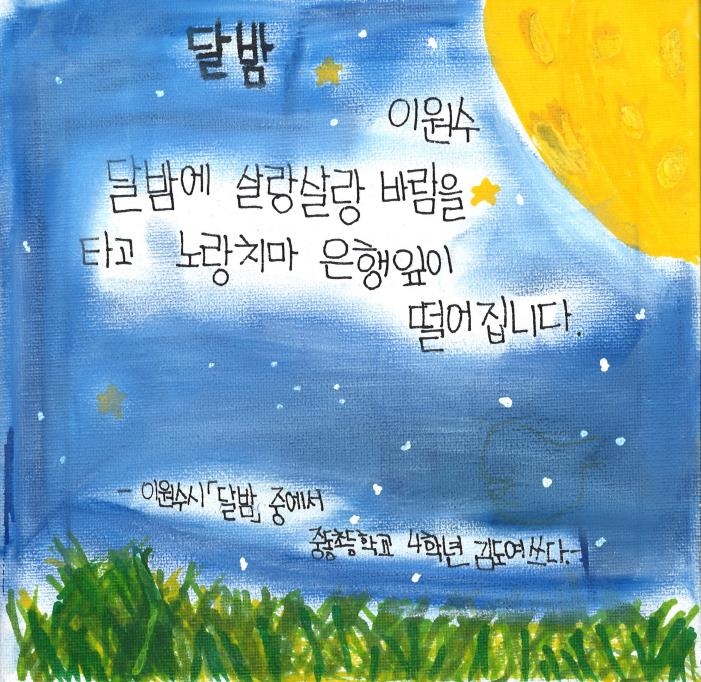 달밤
이원수
달밤에 살랑살랑 바람을
타고 노랑치마 은행잎이
떨어집니다.
- 이원수시「달밤」중에서
중동초등학교 4학년 김도여쓰다.-